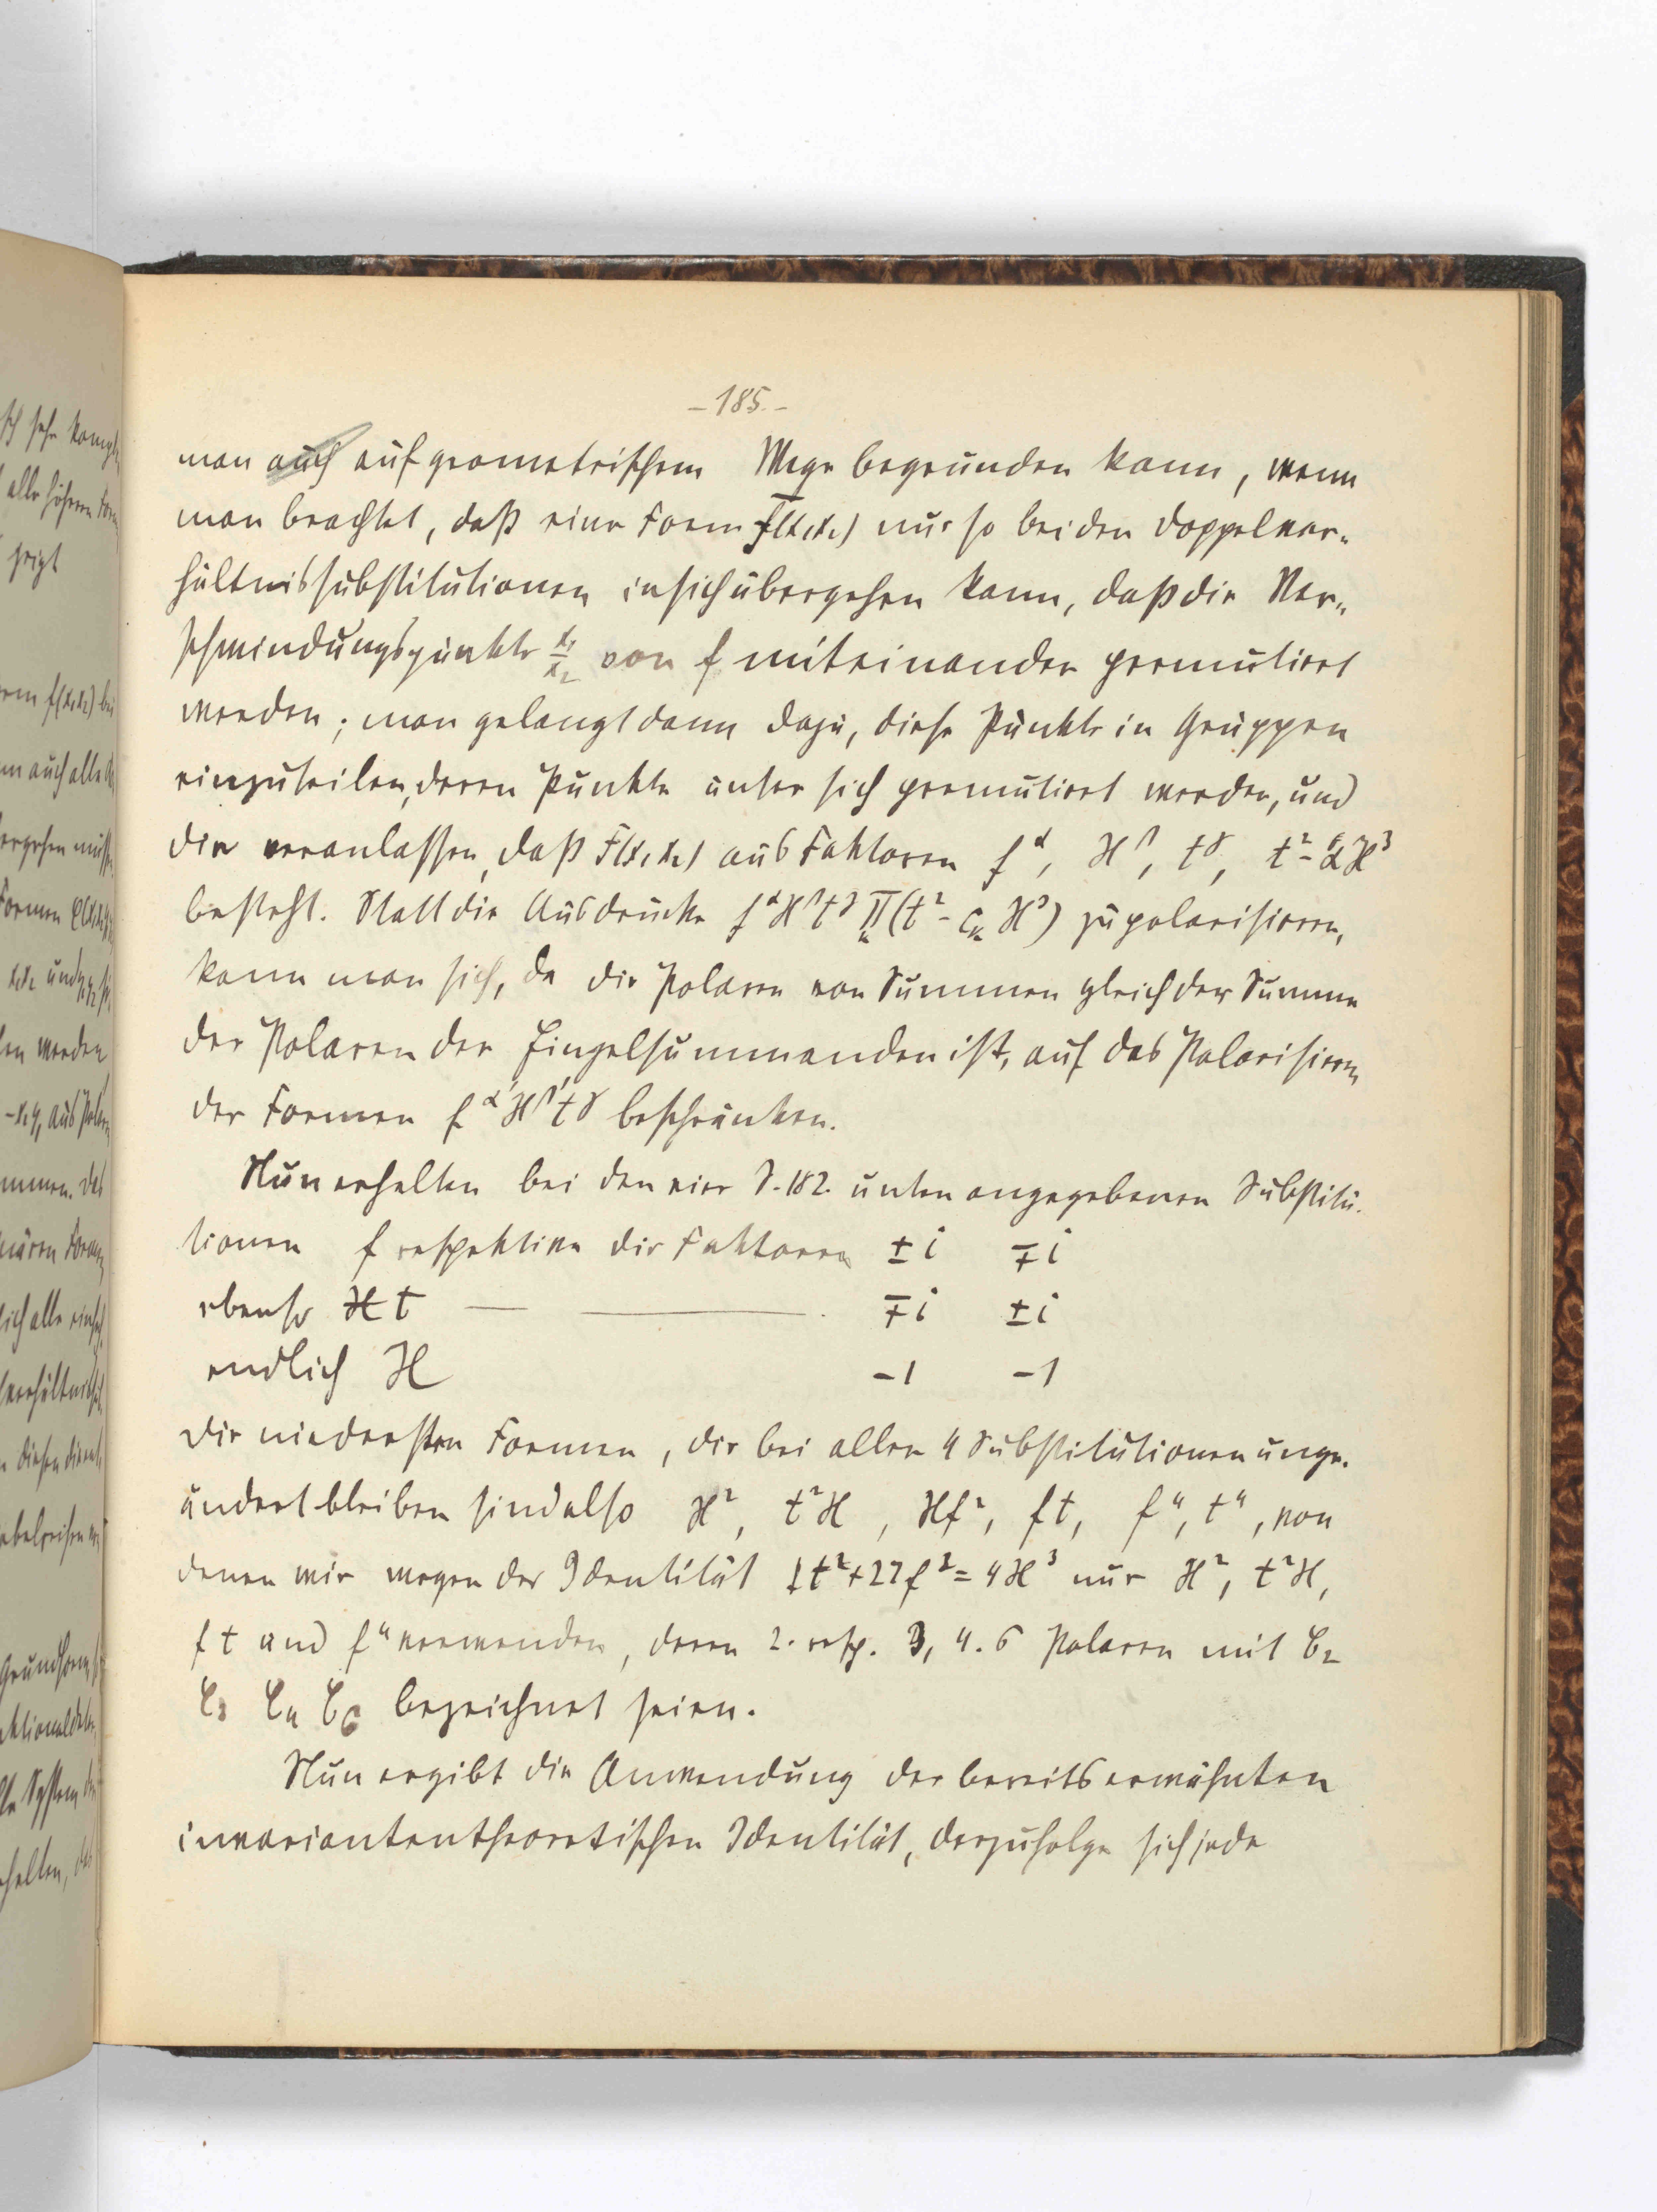 - 185. -
man auch auf geometrischem Wege begründen kann, wenn
man beachtet, daß eine Form F(x₁x₂) nur so bei den Doppelver-
hältnissubstitutionen in sich übergehen kann, daß die Ver-
schwindungspunkte x₁/x₂ von f miteinander permutiert
werden; man gelangt dann dazu, diese Punkte in Gruppen
einzuteilen, deren Punkte unter sich permutiert werden, und
die veranlassen, daß F(x₁x₂) aus Faktoren f^α, H^β, t^γ, t²- H³
besteht. Statt die Ausdrücke f^α H^β t^γ ∏(t² - cₖ H³) zu polarisieren,
kann man sich, da die Polaren von Summen gleich der Summe
der Polaren der Einzelsummanden ist, auf das Polarisieren
der Formen f^α' H^β' t^γ beschränken.
Nun erhalten bei den vier S. 182. unten angegebenen Substitu-
tionen f respektive die Faktoren ± i ∓ i
ebenso t — — ∓ i ± i
endlich H -1 -1
Die niedersten Formen, die bei allen 4 Substitutionen unge-
ändert bleiben sind also H², t²H, Hf², ft, f⁴, t⁴, von
denen wir wegen der Identität t²+27f²=4H³ nur H², t²H,
ft und f⁴ verwenden, deren 2. resp. 3, 4. 6 Polaren mit C₂
C₃ C₄ C₆ bezeichnet seien.
Nun ergibt die Anwendung der bereits erwähnten
invariantentheoretischen Identität, derzufolge sich jede